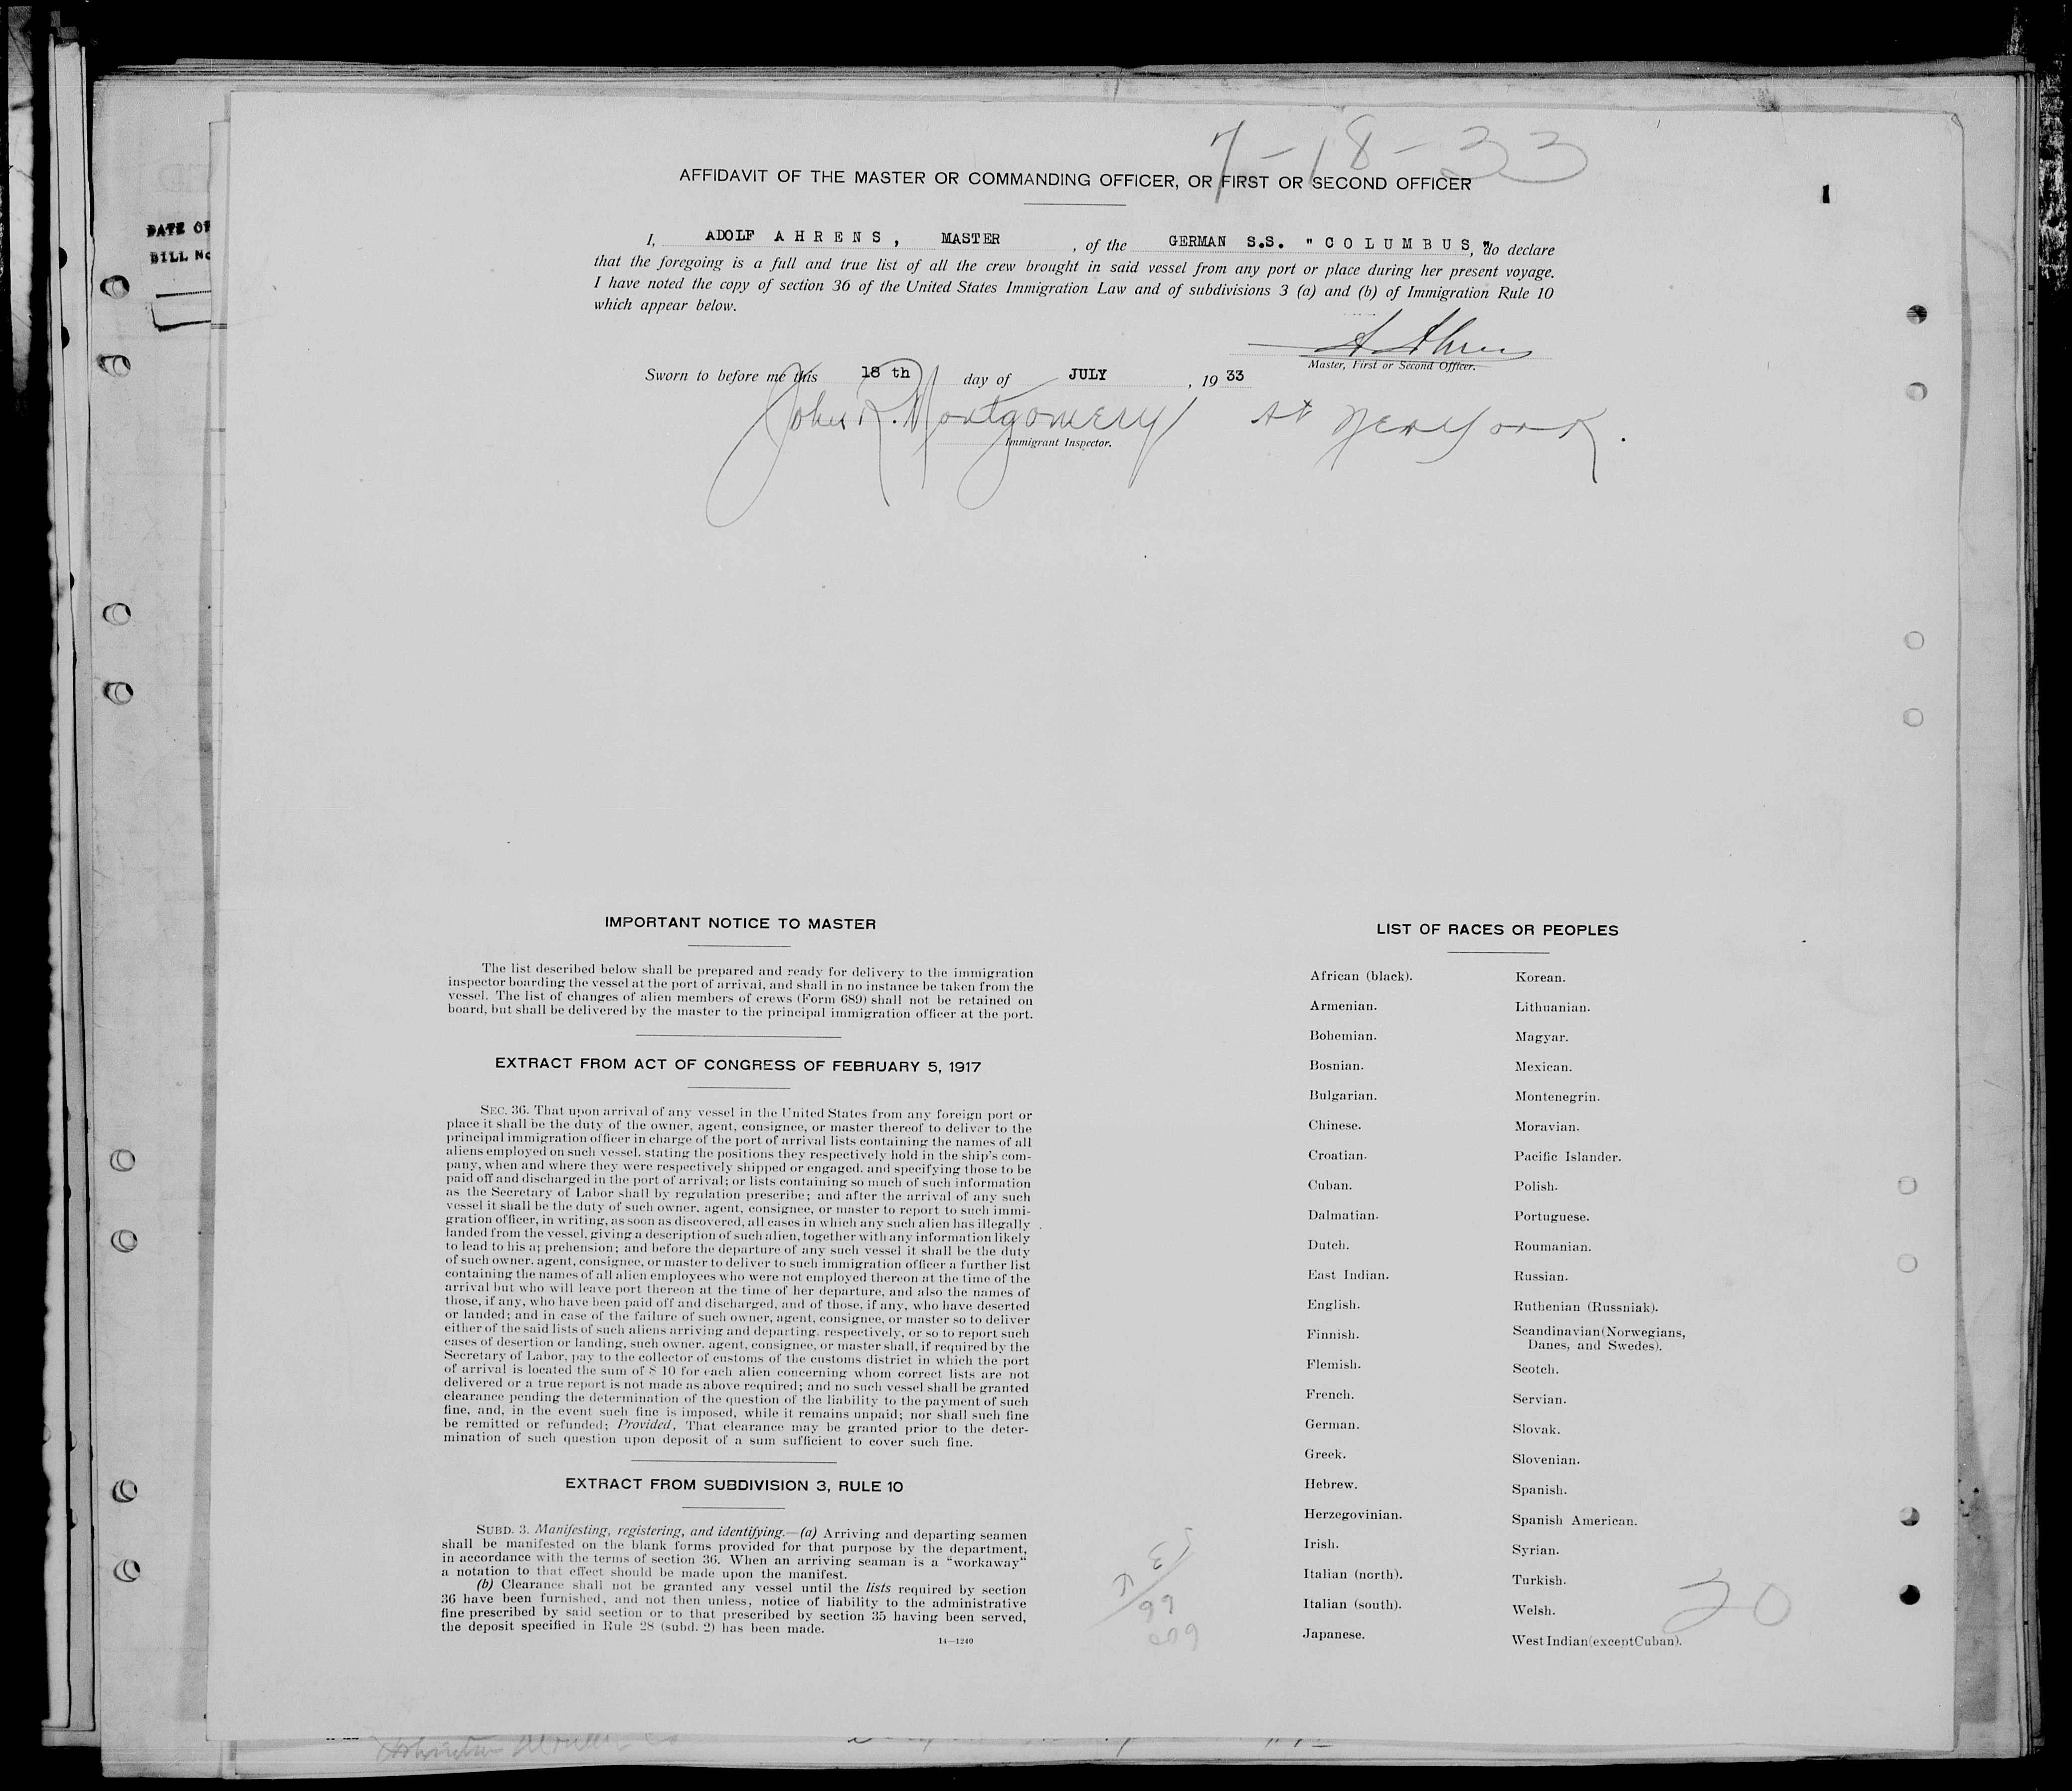 7-18-33
AFFIDAVIT OF THE MASTER OR COMMANDING OFFICER, OR FIRST OR SECOND OFFICER
1
DATE OF
BILL No
I, ADOLF AHRENS, MASTER, of the GERMAN S.S. "COLUMBUS," do declare
that the foregoing is a full and true list of all the crew brought in said vessel from any port or place during her present voyage.
I have noted the copy of section 36 of the United States Immigration Law and of subdivisions 3 (a) and (b) of Immigration Rule 10
which appear below.
A. Ahrens
Master, First or Second Officer.
Sworn to before me this 18 th day of JULY, 19 33
John R. Montgomery At New York.
Immigrant Inspector.
IMPORTANT NOTICE TO MASTER
The list described below shall be prepared and ready for delivery to the immigration
inspector boarding the vessel at the port of arrival, and shall in no instance be taken from the
vessel. The list of changes of alien members of crews (Form 689) shall not be retained on
board, but shall be delivered by the master to the principal immigration officer at the port.
EXTRACT FROM ACT OF CONGRESS OF FEBRUARY 5, 1917
SEC. 36. That upon arrival of any vessel in the United States from any foreign port or
place it shall be the duty of the owner, agent, consignee, or master thereof to deliver to the
principal immigration officer in charge of the port of arrival lists containing the names of all
aliens employed on such vessel. stating the positions they respectively hold in the ship's com-
pany, when and where they were respectively shipped or engaged. and specifying those to be
paid off and discharged in the port of arrival; or lists containing so much of such information
as the Secretary of Labor shall by regulation prescribe; and after the arrival of any such
vessel it shall be the duty of such owner, agent, consignee, or master to report to such immi-
gration officer, in writing, as soon as discovered, all cases in which any such alien has illegally
landed from the vessel, giving a description of such alien, together with any information likely
to lead to his a; prehension; and before the departure of any such vessel it shall be the duty
of such owner. agent, consignee, or master to deliver to such immigration officer a further list
containing the names of all alien employees who were not employed thereon at the time of the
arrival but who will leave port thereon at the time of her departure, and also the names of
those, if any, who have been paid off and discharged, and of those, if any, who have deserted
or landed; and in case of the failure of such owner, agent, consignee, or master so to deliver
either of the said lists of such aliens arriving and departing. respectively, or so to report such
cases of desertion or landing, such owner. agent, consignee, or master shall, if required by the
Secretary of Labor, pay to the collector of customs of the customs district in which the port
of arrival is located the sum of $ 10 for each alien concerning whom correct lists are not
delivered or a true report is not made as above required; and no such vessel shall be granted
clearance pending the determination of the question of the liability to the payment of such
fine, and, in the event such fine is imposed, while it remains unpaid; nor shall such fine
be remitted or refunded; Provided, That clearance may be granted prior to the deter-
mination of such question upon deposit of a sum sufficient to cover such fine.
EXTRACT FROM SUBDIVISION 3, RULE 10
SUBD. 3. Manifesting, registering, and identifying.—(a) Arriving and departing seamen
shall be manifested on the blank forms provided for that purpose by the department,
in accordance with the terms of section 36. When an arriving seaman is a “workaway“
a notation to that effect should be made upon the manifest.
(b) Clearance shall not be granted any vessel until the lists required by section
36 have been furnished, and not then unless, notice of liability to the administrative
fine prescribed by said section or to that prescribed by section 35 having been served,
the deposit specified in Rule 28 (subd. 2) has been made.
14—1240
LIST OF RACES OR PEOPLES
African (black).
Armenian.
Bohemian.
Bosnian.
Bulgarian.
Chinese.
Croatian.
Cuban.
Dalmatian.
Dutch.
East Indian.
English.
Finnish.
Flemish.
French.
German.
Greek.
Hebrew.
Herzegovinian.
Irish.
Italian (north).
Italian (south).
Japanese.
Korean.
Lithuanian.
Magyar.
Mexican.
Montenegrin.
Moravian.
Pacific Islander.
Polish.
Portuguese.
Roumanian.
Russian.
Ruthenian (Russniak).
Scandinavian (Norwegians,
Danes, and Swedes).
Scotch.
Servian.
Slovak.
Slovenian.
Spanish.
Spanish American.
Syrian.
Turkish.
Welsh.
West Indian (except Cuban).
20